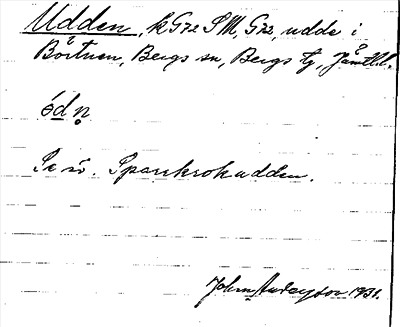 Udden, k G72 SM, G72, udde i
Börtnen, Bergs sn, Bergs tg, Jämtl.
ód n̥
Se sö. Spankrokudden.
John Andersson 1931.